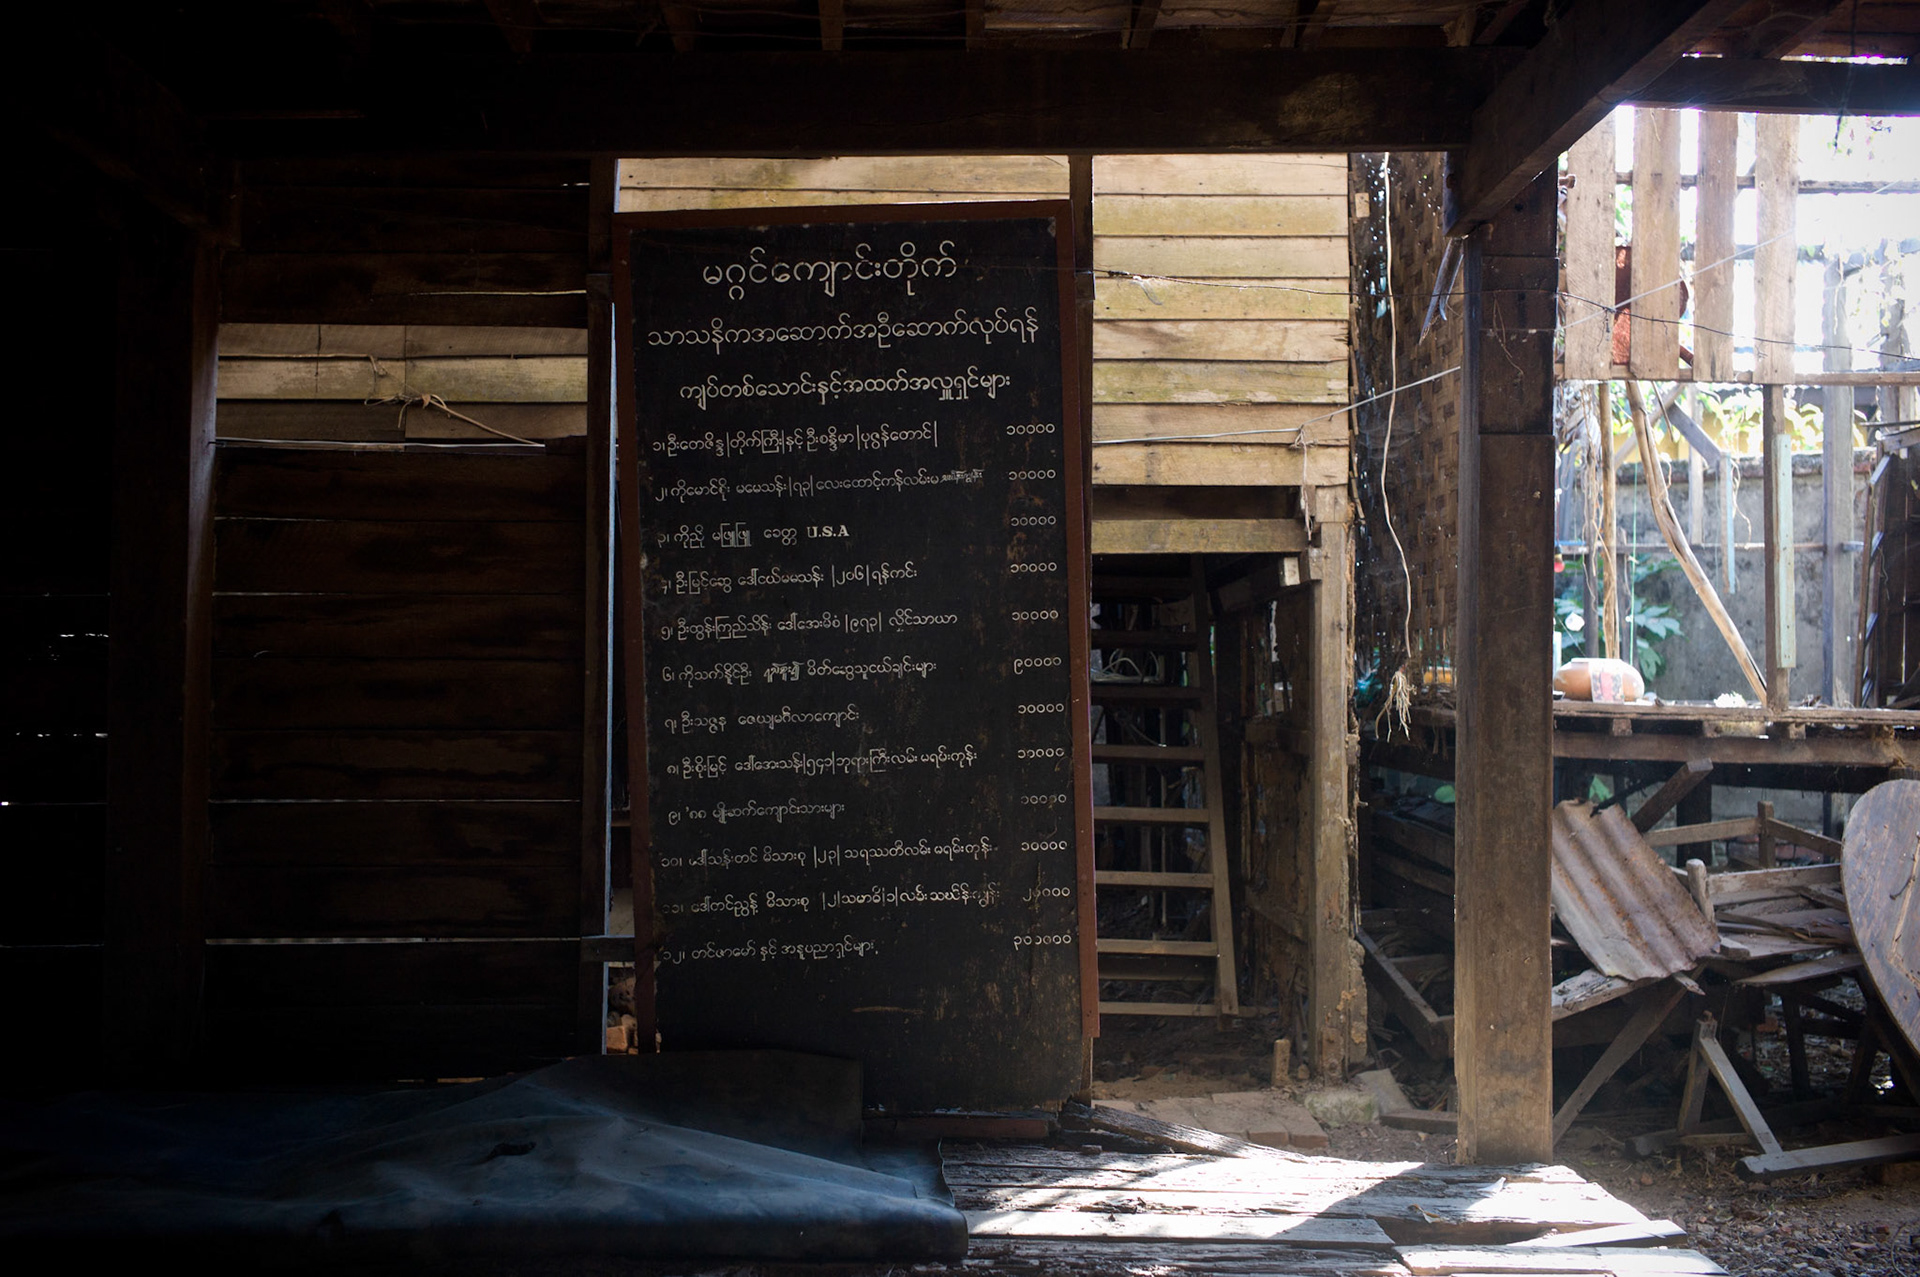 မဂ္ဂင်ကျောင်းတိုက်
သာသနိကအဆောက်အဦဆောက်လုပ်ရန်
ကျပ်တစ်သောင်းနှင့်အထက်အလှူရှင်များ
၁၊ ဦးတေဇိန္ဒ|တိုက်ကြီး|နှင့် ဦးစန္ဒိမာ|ပုဇွန်တောင်| ၁၀၀၀၀
၂၊ ကိုမောင်စိုး မမေသန်း|၇၃| လေးထောင့်ကန်လမ်းမ ၁၀၀၀၀
၃၊ ကိုညို မဖြူဖြူ ခေတ္တ U.S.A ၁၀၀၀၀
၄၊ ဦးမြင့်ဆွေ ဒေါ်ငယ်မမသန်း |၂၀၆| ရန်ကင်း ၁၀၀၀၀
၅၊ ဦးထွန်းကြည်သိန်း ဒေါ်အေးမိစံ |၉၇၃| လှိုင်သာယာ ၁၀၀၀၀
၆၊ ကိုသက်နိုင်ဦး မိတ်ဆွေသူငယ်ချင်းများ ၉၀၀၀၀
၇၊ ဦးသဇ္ဇန ဇေယျမင်္ဂလာကျောင်း ၁၀၀၀၀
၈၊ ဦးစိုးမြင့် ဒေါ်အေးသန်း|၅၄၁|ဘုရားကြီးလမ်း မရမ်းကုန်း ၁၁၀၀၀
၉၊ '၈၈ မျိုးဆက်ကျောင်းသားများ ၁၀၀၁၀
၁၀၊ ဒေါ်သန်းတင် မိသားစု |၂၃| သရဿတီလမ်း မရမ်းကုန်း ၁၀၀၀၀
၁၁၊ ဒေါ်တင်ညွန့် မိသားစု |၂|သမာဓိ|၁|လမ်း သင်္ဃန်းကျွန်း
၁၂၊ တင်ဇာမော် နှင့် အနုပညာရှင်များ ၃၀၁၀၀၀